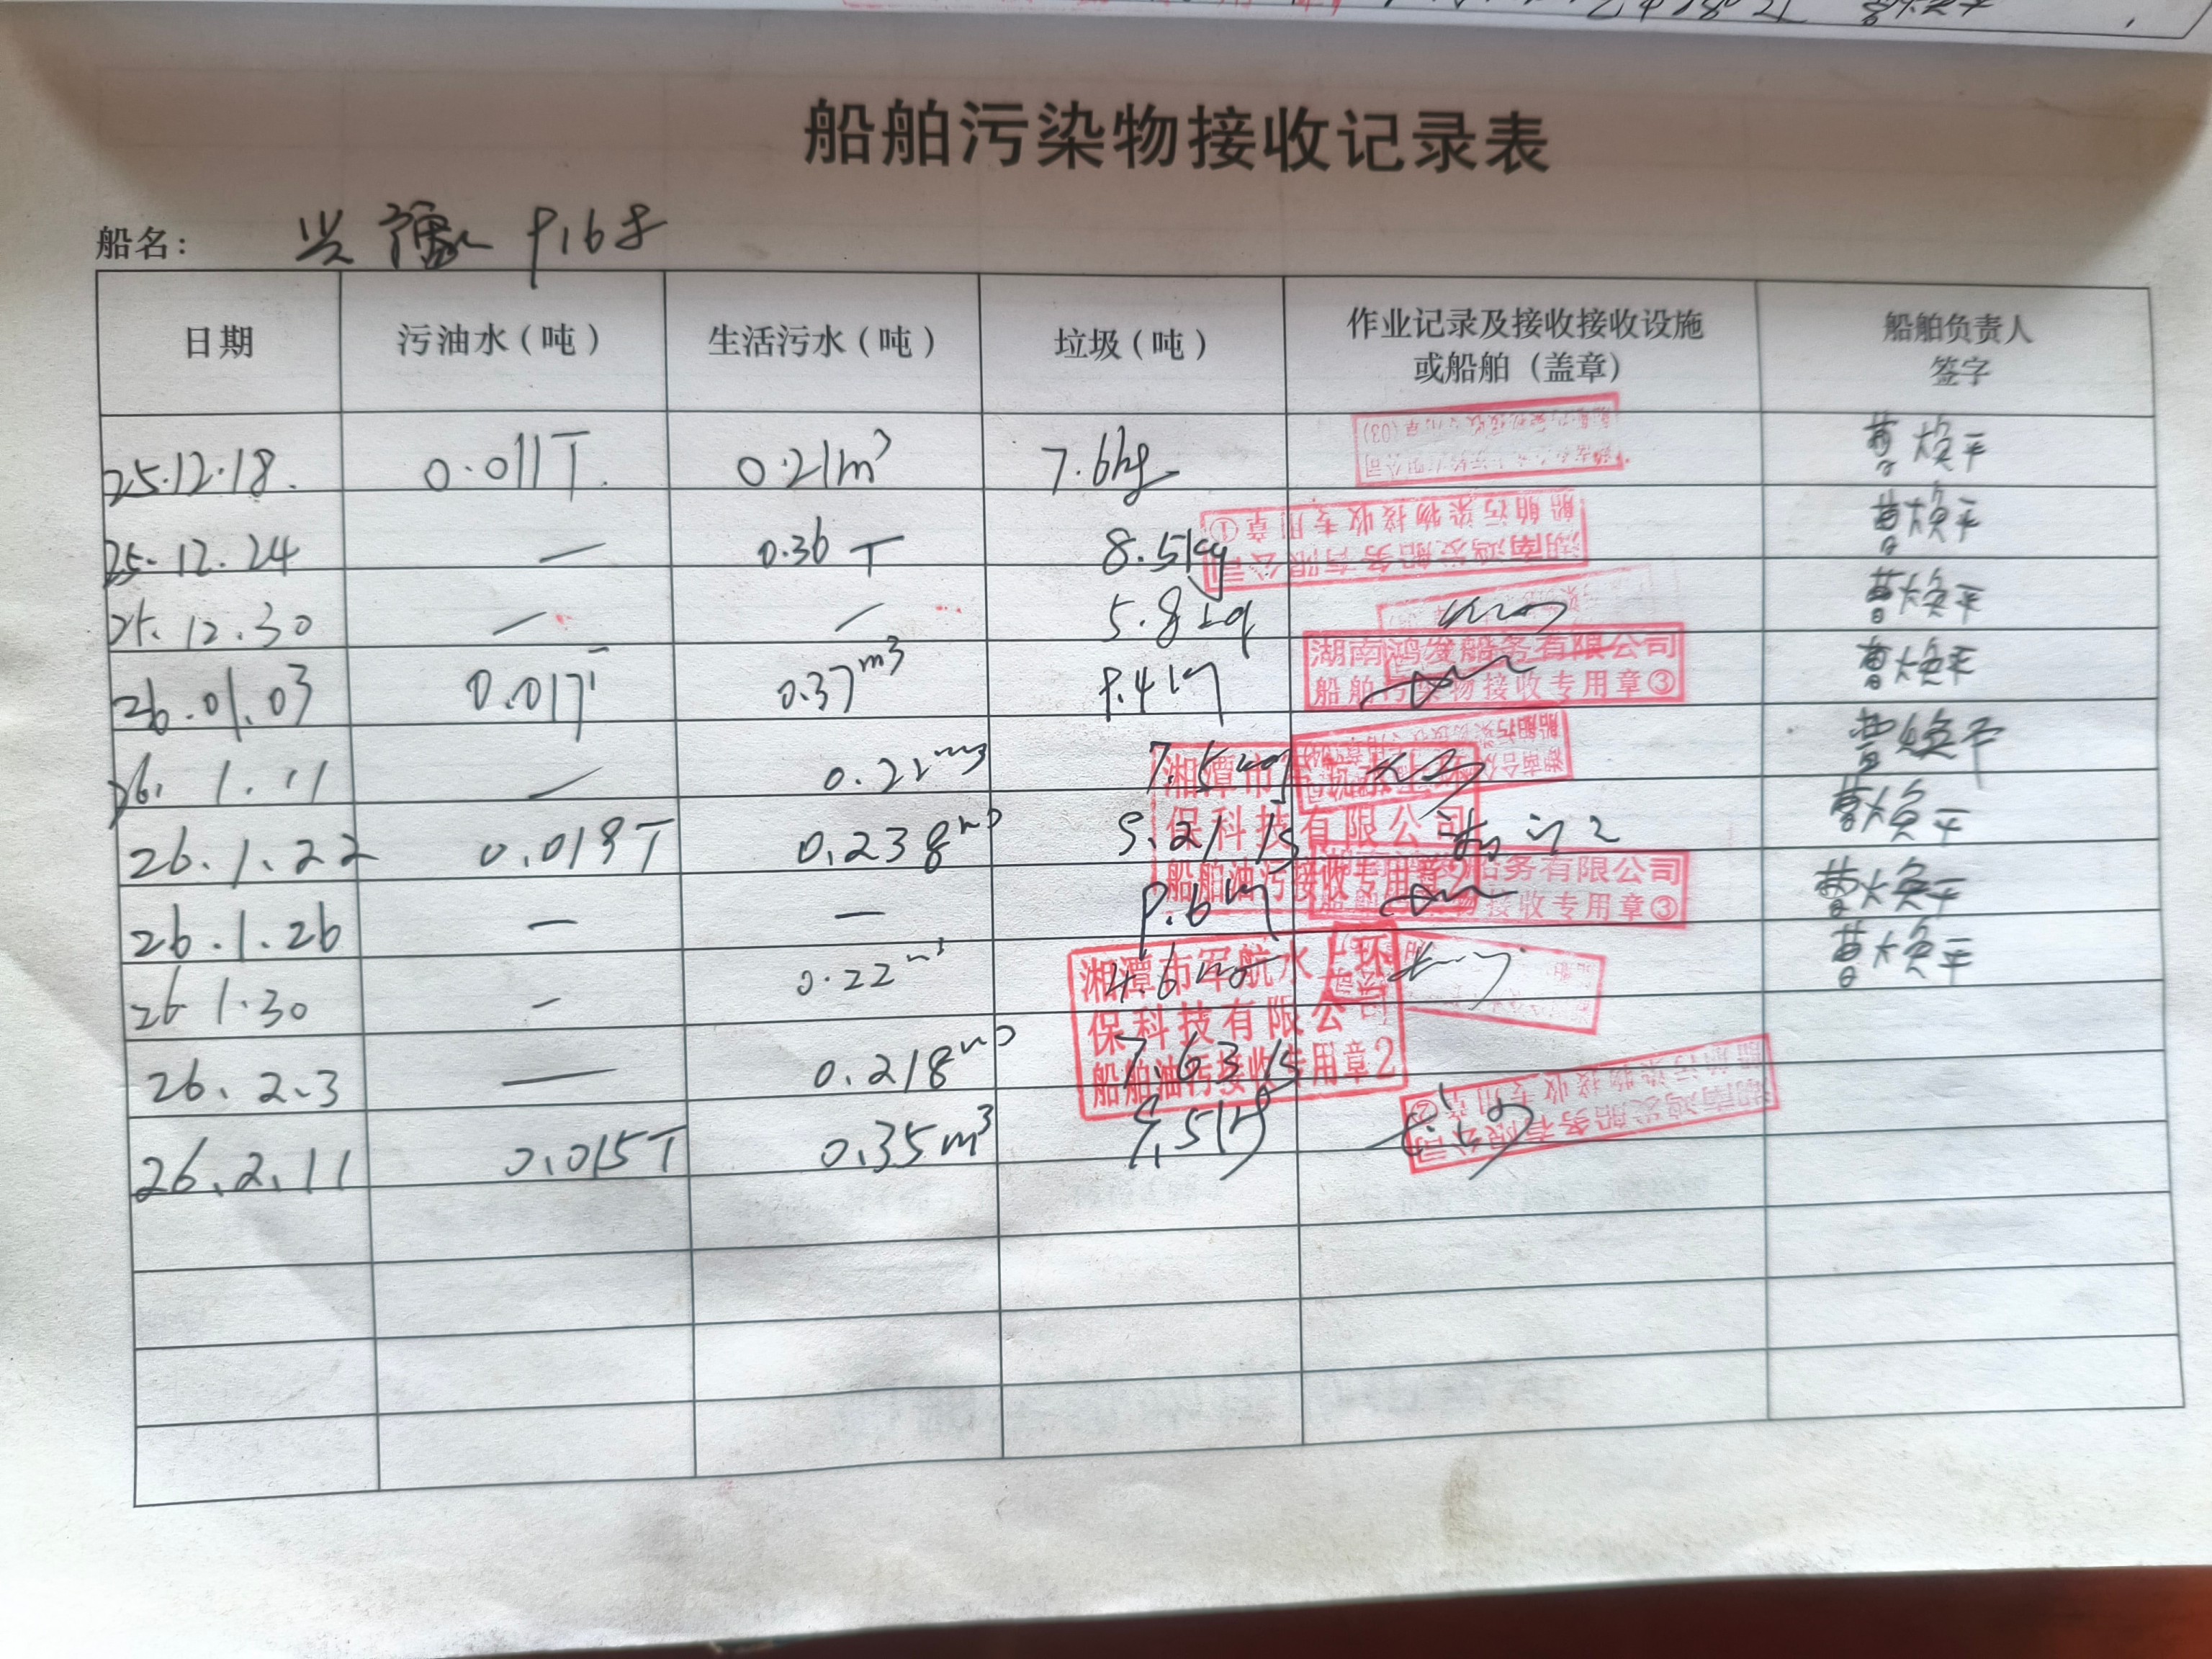 船舶污染物接收记录表
船名：
日期 污油水（吨） 生活污水（吨） 垃圾（吨） 作业记录及接收接收设施 或船舶（盖章） 船舶负责人 签字
25.12.18. 0.011T. 0.21m³ 7.6kg 曹焕平
25.12.24 — 0.36T 8.5kg 湖南鸿发船务有限公司 船舶污染物接收专用章① 曹焕平
25.12.30 — — 5.8kg 曹焕平
26.01.03 0.37m³ 9.4kg 湖南鸿发船务有限公司 船舶污染物接收专用章③ 曹焕平
26.1.11 — 0.22m³ 7.5kg 曹焕平
26.1.22 0.019T 0.238m³ 曹焕平
湘潭市军航水上环
保科技有限公司
船舶油污接收专用章2
26.1.26 — — 9.6kg 船务有限公司 物接收专用章③ 曹焕平
26 1.30 — 0.22m³ 4.6kg 曹焕平
湘潭市军航水上环
保科技有限公司
船舶油污接收专用章2
26.2.3 — 0.218m³ 7.63
26.2.11 0.015T 0.35m³ 9.5kg 湖南鸿发船务有限公司 船舶污染物接收专用章②